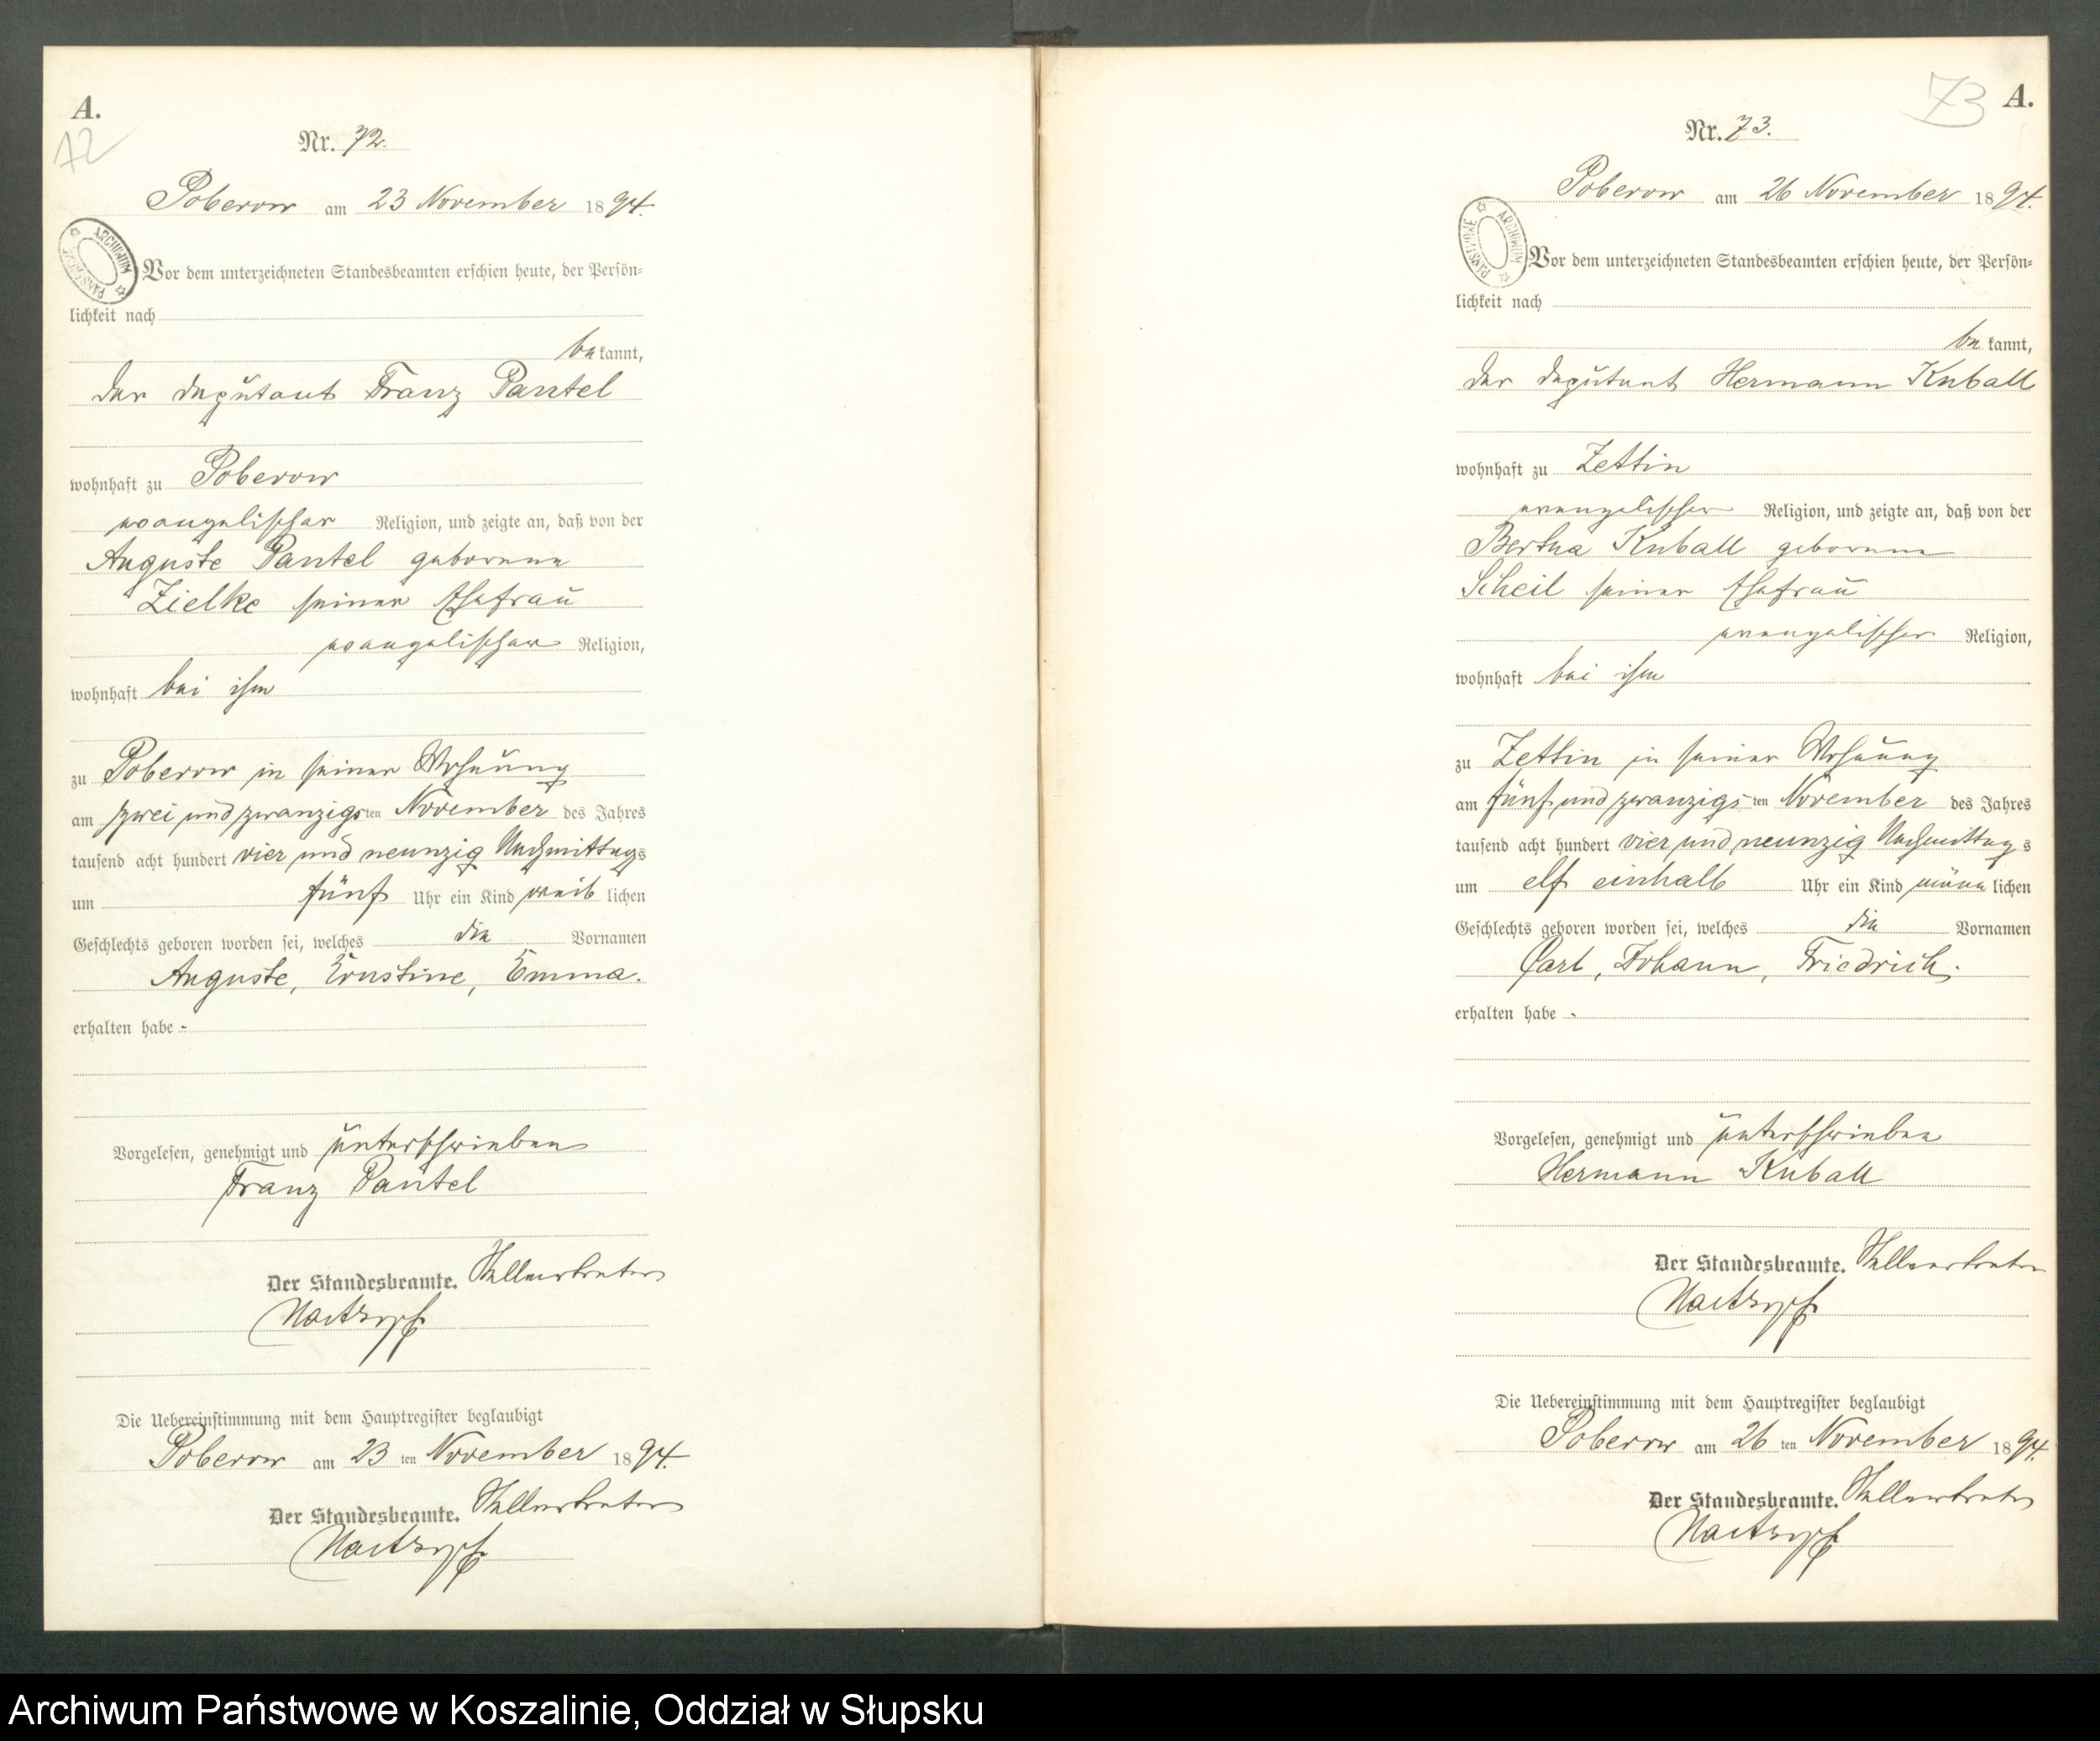 A.
72
Nr. 72.
Poberow am 23 November 1894.
ARCHIWUM PAŃSTWOWE
Vor dem unterzeichneten Standesbeamten erschien heute, der Persön-
lichkeit nach
bekannt,
der deputant Franz Pantel
wohnhaft zu Poberow
evangelischer Religion, und zeigte an, daß von der
Auguste Pantel geborene
Zielke seiner Ehefrau
evangelischer Religion,
wohnhaft bei ihm
zu Poberow in seiner Wohnung
am zwei und zwanzigsten November des Jahres
tausend acht hundert vier und neunzig Nachmittags
um fünf Uhr ein Kind weiblichen
Geschlechts geboren worden sei, welches die Vornamen
Auguste, Ernstine, Emma.
erhalten habe -
Vorgelesen, genehmigt und unterschrieben
Franz Pantel
Der Standesbeamte. Stellvertreter
Die Uebereinstimmung mit dem Hauptregister beglaubigt
Poberow am 23 ten November 1894.
Der Standesbeamte. Stellvertreter
73
A.
Nr. 73.
Poberow am 26 November 1894.
ARCHIWUM PAŃSTWOWE
Vor dem unterzeichneten Standesbeamten erschien heute, der Persön-
lichkeit nach
bekannt,
der deputant Hermann Kuball
wohnhaft zu Zettin
evangelischer Religion, und zeigte an, daß von der
Bertha Kuball geborene
Scheil seiner Ehefrau
evangelischer Religion,
wohnhaft bei ihm
zu Zettin in seiner Wohnung
am fünf und zwanzigsten November des Jahres
tausend acht hundert vier und neunzig Nachmittags
um elf einhalb Uhr ein Kind männlichen
Geschlechts geboren worden sei, welches die Vornamen
Carl, Johann, Friedrich.
erhalten habe -
Vorgelesen, genehmigt und unterschrieben
Hermann Kuball
Der Standesbeamte. Stellvertreter
Die Uebereinstimmung mit dem Hauptregister beglaubigt
Poberow am 26 ten November 1894.
Der Standesbeamte. Stellvertreter
Archiwum Państwowe w Koszalinie, Oddział w Słupsku